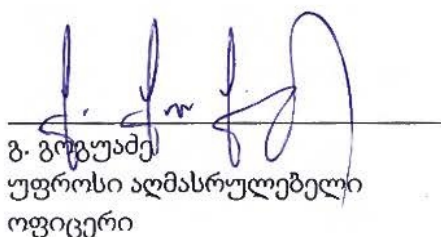 გ. გოგუაძე
უფროსი აღმასრულებელი
ოფიცერი